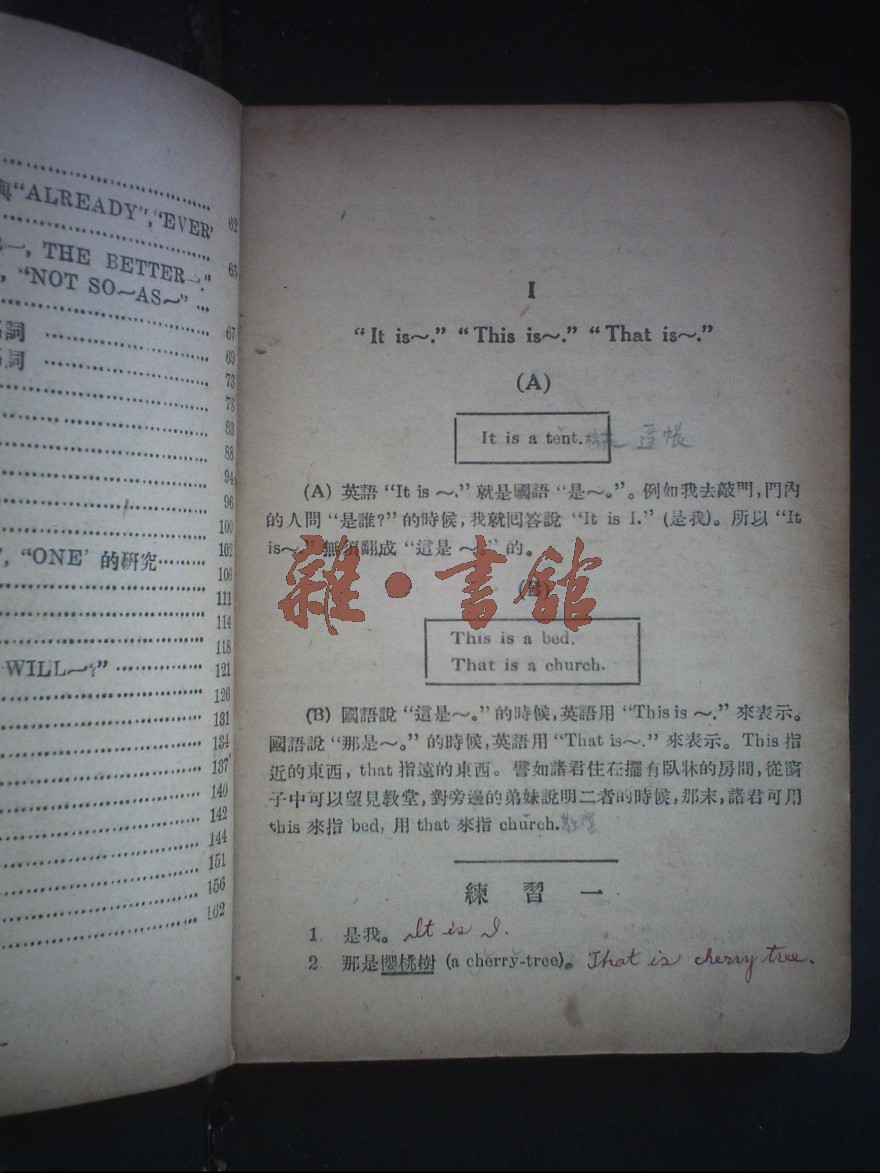 與“ALREADY”, “EVER’
62
THE BETTER～.”
65
“NOT SO～AS～”
67
詞
69
詞
73
78
83
88
94
96
100
102
“ONE’ 的研究
106
111
114
118
WILL～?”
121
126
131
134
137
140
142
144
151
156
162
I
“It is～.” “This is～.” “That is～.”
(A)
It is a tent. 這 帳
(A) 英語 “It is ～.” 就是國語 “是～。”。例如我去敲門，門內
的人問 “是誰?” 的時候，我就回答說 “It is I.” (是我)。所以 “It
is～.” 無須翻成 “這是 ～。” 的。
雜·書館
(B)
This is a bed.
That is a church.
(B) 國語說 “這是～。” 的時候，英語用 “This is ～.” 來表示。
國語說 “那是～。” 的時候，英語用 “That is～.” 來表示。This 指
近的東西，that 指遠的東西。譬如諸君住在擺有臥牀的房間，從窗
子中可以望見教堂，對旁邊的弟妹說明二者的時候，那末，諸君可用
this 來指 bed, 用 that 來指 church. 教堂
練習一
1 是我。 It is I.
2 那是櫻桃樹 (a cherry-tree)。 That is cherry tree.